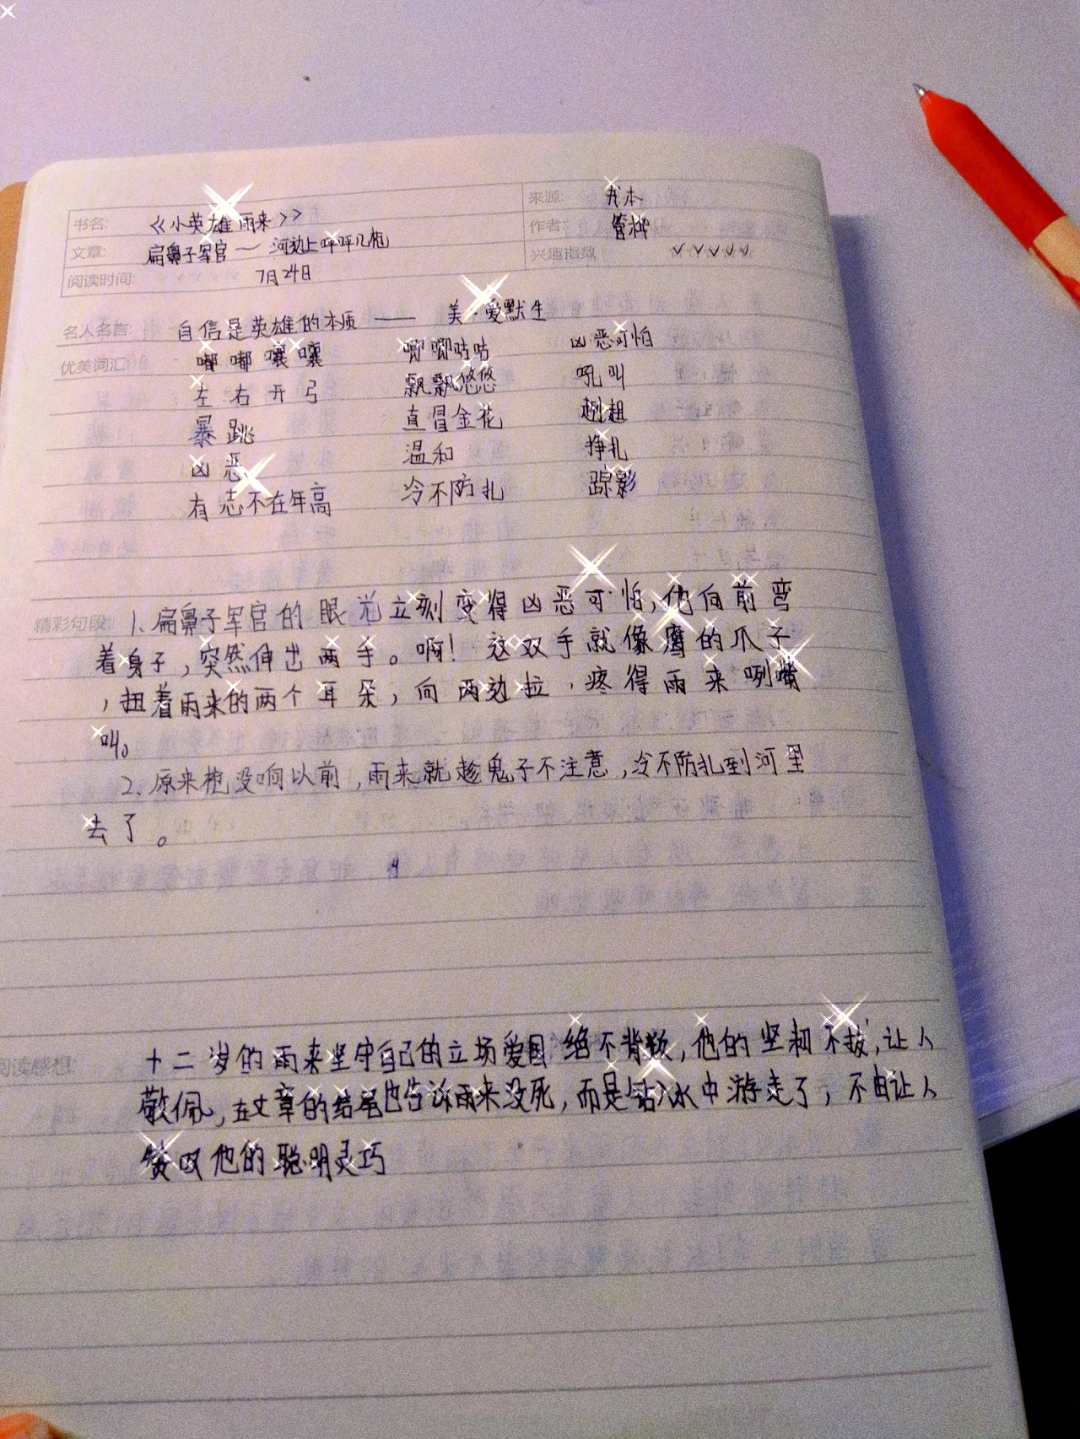 书名: 《小英雄雨来》
来源: 书本
文章: 扁鼻子军官—河沿上呯呯几枪
作者: 管桦
阅读时间: 7月24日
兴趣指数 ✓✓✓✓✓
名人名言: 自信是英雄的本质 —— 美·爱默生
优美词汇: 嘟嘟囔囔 唧唧咕咕 凶恶可怕
左右开弓 飘飘悠悠 吼叫
暴跳 直冒金花 趔趄
凶恶 温和 挣扎
有志不在年高 冷不防扎 踪影
精彩句段: 1、扁鼻子军官的眼光立刻变得凶恶可怕,他向前弯
着身子,突然伸出两手。啊!这双手就像鹰的爪子
,扭着雨来的两个耳朵,向两边拉,疼得雨来咧嘴
叫。
2、原来枪没响以前,雨来就趁鬼子不注意,冷不防扎到河里
去了。
阅读感想: 十二岁的雨来坚守自己的立场爱国绝不背叛,他的坚韧不拔,让人
敬佩,在文章的结尾也告诉雨来没死,而是钻入水中游走了,不由让人
赞叹他的聪明灵巧